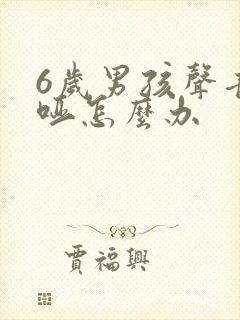 6歲男孩聲音
啞怎麼办
賈福興